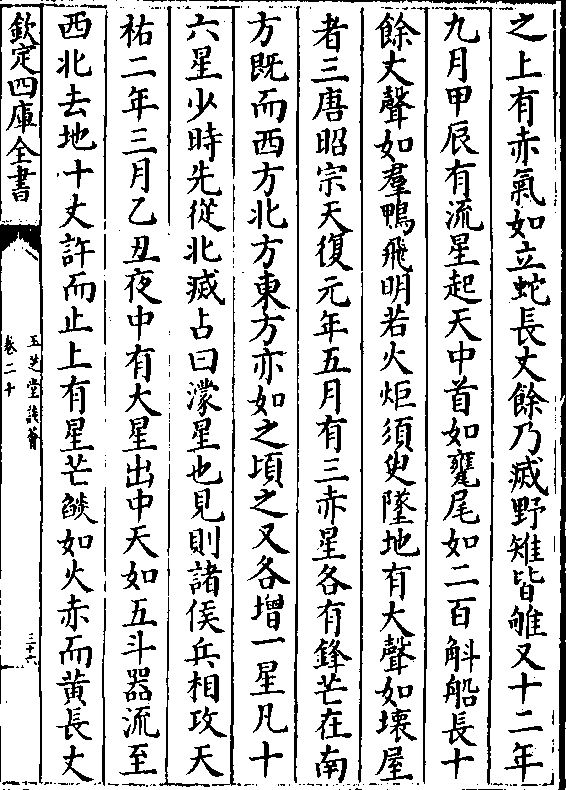 之上有赤氣如立蛇長丈餘乃滅野雉皆雊又十二年
九月甲辰有流星起天中首如甕尾如二百斛船長十
餘丈聲如羣鴨飛明若火炬須臾墜地有大聲如壞屋
者三唐昭宗天復元年五月有三赤星各有鋒芒在南
方既而西方北方東方亦如之頃之又各增一星凡十
六星少時先從北滅占曰濛星也見則諸侯兵相攻天
祐二年三月乙丑夜中有大星出中天如五斗器流至
西北去地十丈許而止上有星芒燄如火赤而黃長丈
欽定四庫全書
玉芝堂談薈
卷二十
三十六